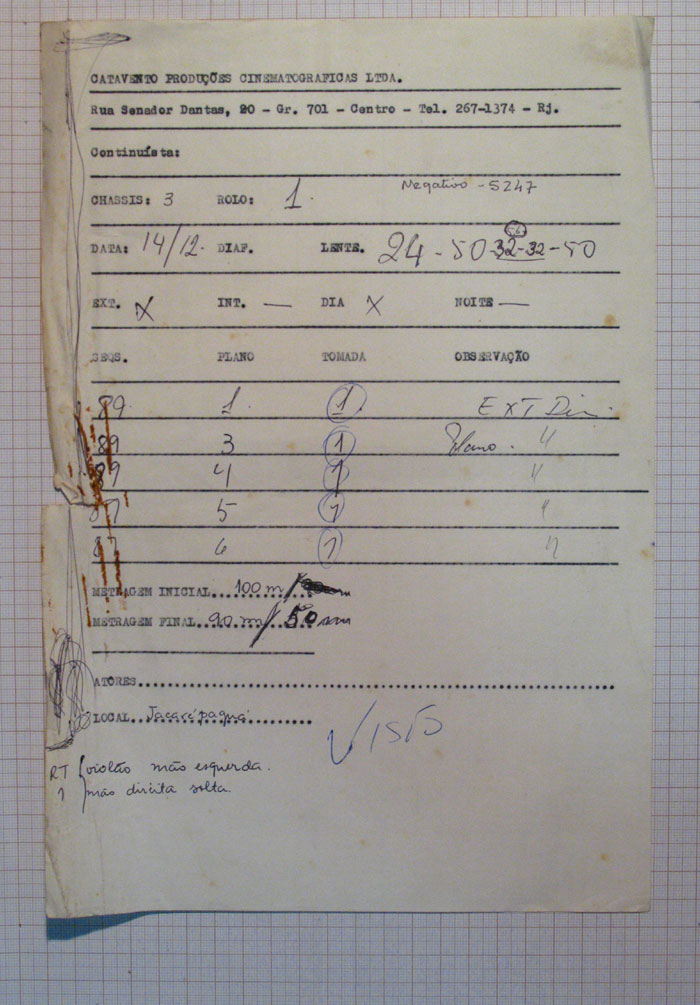 CATAVENTO PRODUÇÕES CINEMATOGRAFICAS LTDA.
Rua Senador Dantas, 20 - Gr. 701 - Centro - Tel. 267-1374 - Rj.
Continuísta:
Negativo - 5247
CHASSIS: 3 ROLO: 1.
DATA: 14/12. DIAF. LENTE. 24 - 50 - 32 - 32 - 50
EXT. X INT. — DIA X NOITE —
SEQS. PLANO TOMADA OBSERVAÇÃO
89. 1. 1 EXT Dia.
89 3 1 Plano. "
89 4 1 "
87 5 1 "
87 6 1 "
METRAGEM INICIAL...100 m/
METRAGEM FINAL..90 m/ 50
ATORES
LOCAL..Jacarépaguá
VISTO
RT { violão mão esquerda.
1 mão direita solta.